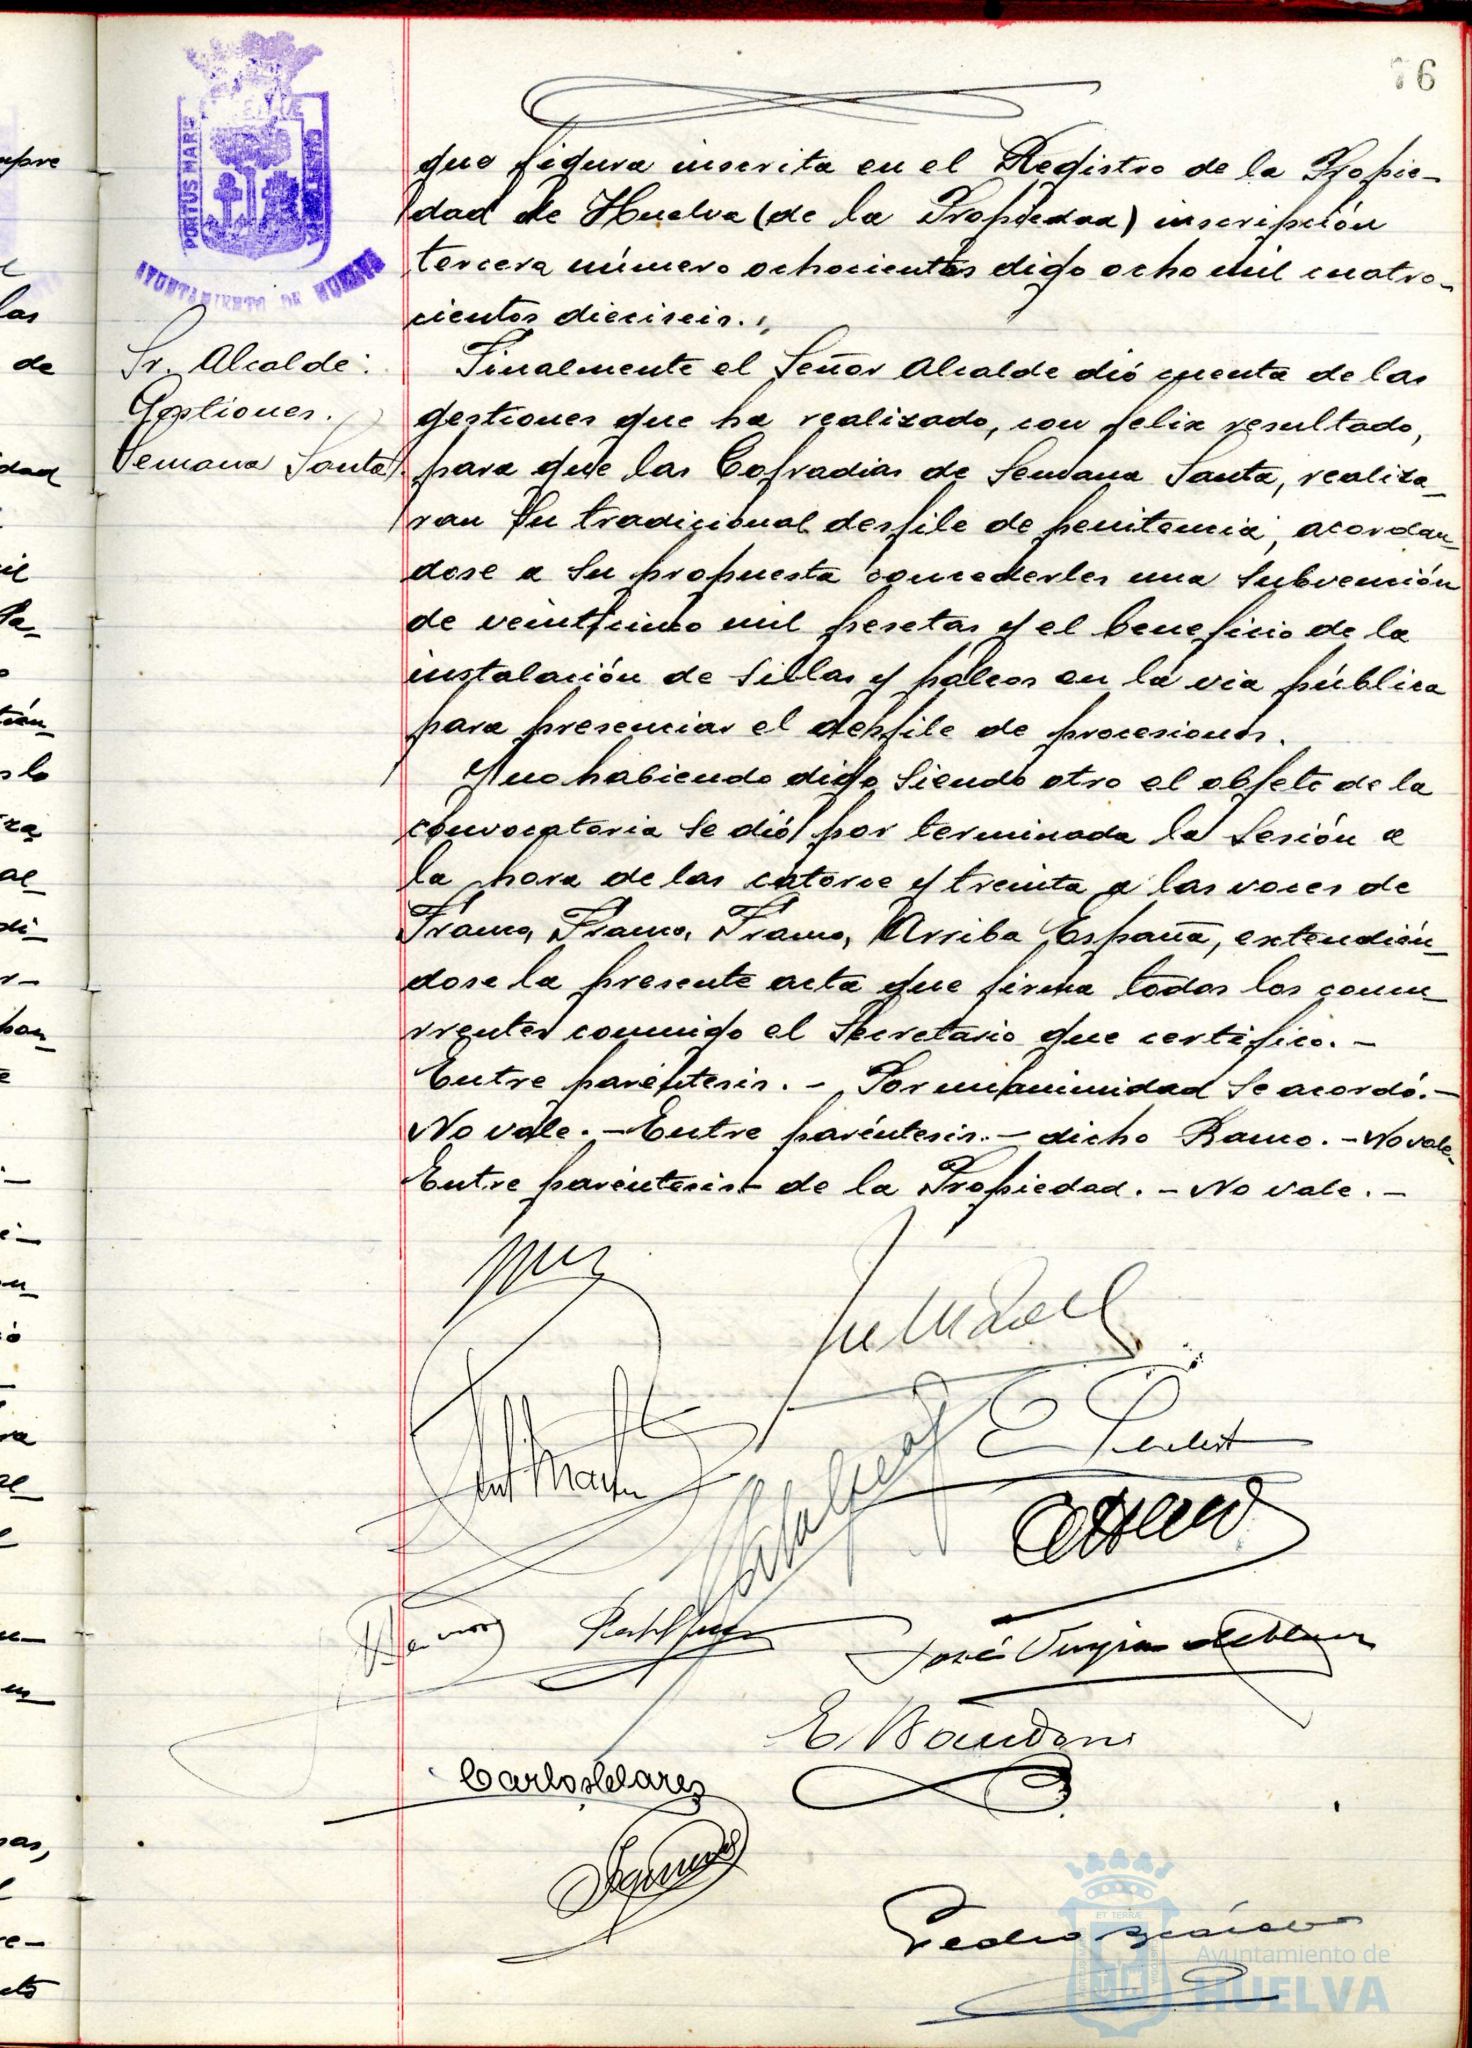 76
PORTUS MARIS
AYUNTAMIENTO DE HUELVA
que figura inscrita en el Registro de la Propie-
dad de Huelva (de la Propiedad) inscripción
tercera número ochocientos digo ocho mil cuatro-
cientos dieciseis.
Sr. Alcalde:
Gestiones.
Semana Santa.
Finalmente el Señor Alcalde dió cuenta de las
gestiones que ha realizado, con felix resultado,
para que las Cofradias de Semana Santa, realiza-
ran su tradicional desfile de penitencia, acordan-
dose a su propuesta concederles una subvención
de veinticinco mil pesetas y el beneficio de la
instalación de sillas y palcos en la via pública
para presenciar el desfile de procesiones.
Y no habiendo digo siendo otro el objeto de la
convocatoria se dió por terminada la sesión a
la hora de las catorce y treinta a las voces de
Franco, Franco, Franco, Arriba España, extendién-
dose la presente acta que firma todos los concu-
rrentes conmigo el Secretario que certifico. -
Entre paréntesis. - Por unanimidad se acordó. -
No vale. - Entre paréntesis. - dicho Ramo. - No vale.-
Entre paréntesis - de la Propiedad. - No vale. -
Carlos
Pedro
ET TERRÆ
Ayuntamiento de
HUELVA